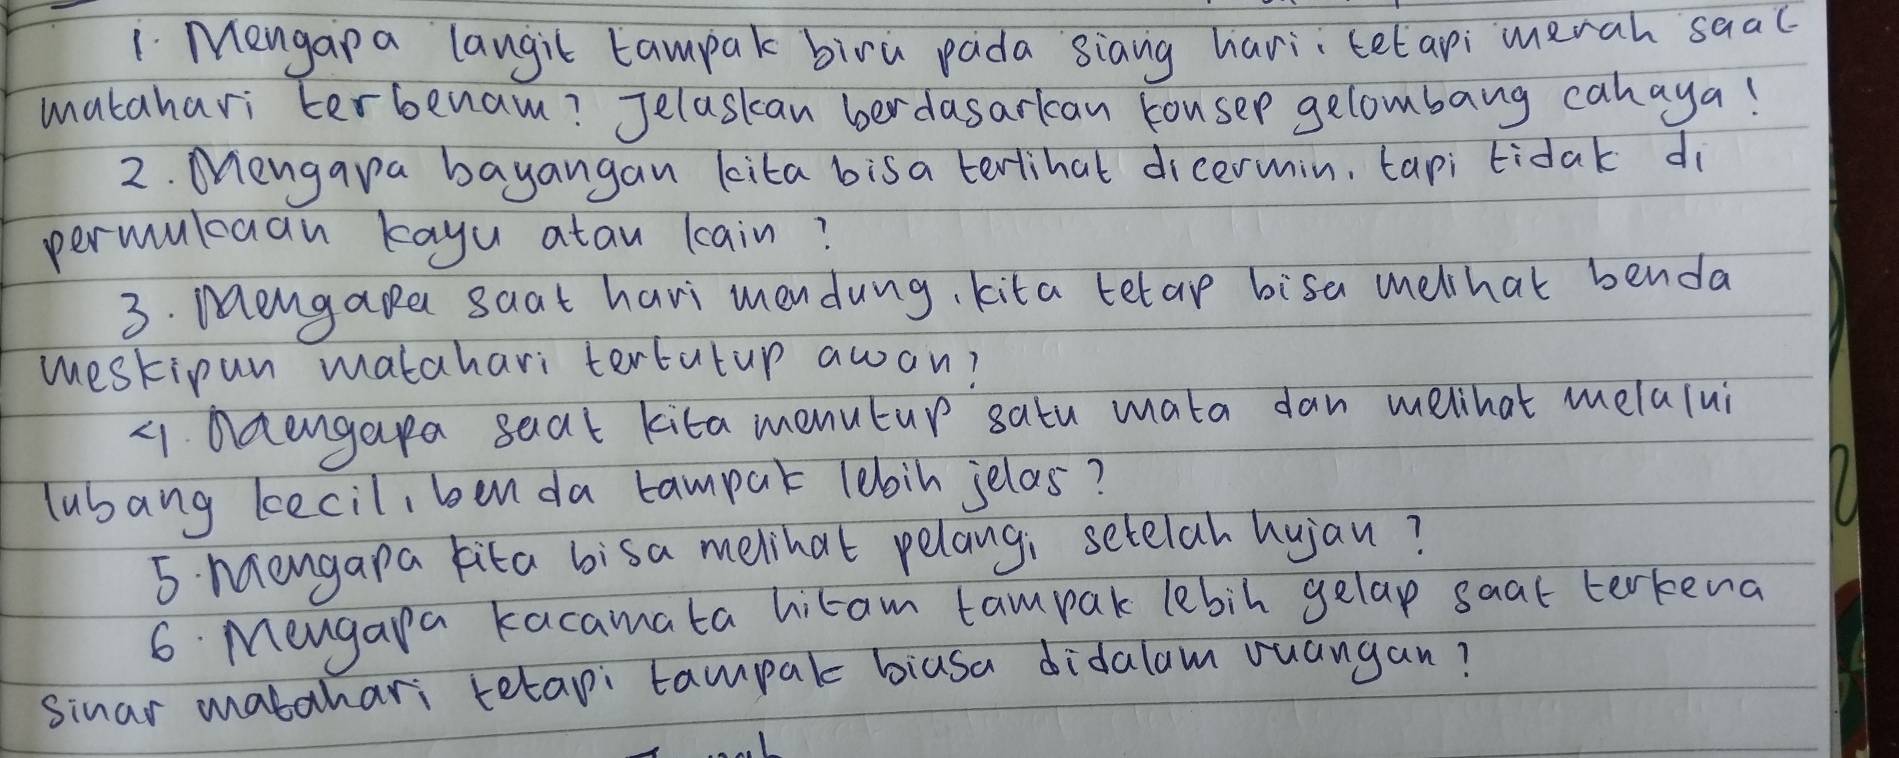 1. Mengapa langit tampak biru pada siang hari, tetapi merah saat
matahari terbenam? Jelaskan berdasarkan konsep gelombang cahaya!
2. Mengapa bayangan kita bisa terlihat dicermin, tapi tidak di
permukaan kayu atau kain?
3. Mengapa saat hari mendung, kita tetap bisa melihat benda
meskipun matahari tertutup awan?
4. Mengapa saat kita menutup satu mata dan melihat melalui
lubang kecil, benda tampak lebih jelas?
5. Mengapa kita bisa melihat pelangi setelah hujan?
6. Mengapa kacamata hitam tampak lebih gelap saat terkena
sinar matahari tetapi tampak biasa didalam ruangan?